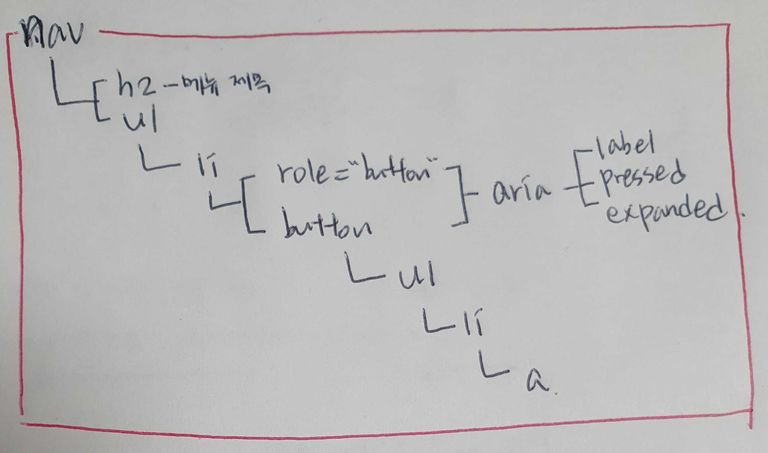 nav
h2 - 메뉴 제목
ul
li
role="button"
button
aria
label
pressed
expanded.
ul
li
a.